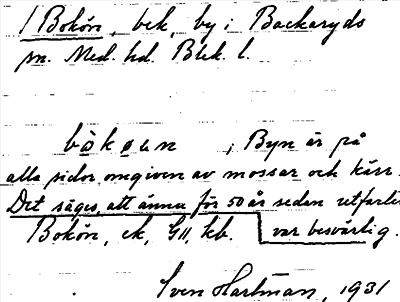 / Bokön, bek, by i Backaryds
sn. Med. hd. Blek. l.
bòkøun ; Byn är på
alla sidor omgiven av mossar och kärr.
Det säges, att ännu för 50 år sedan utfarten
Bokön, ek, GII, kb. var besvärlig.
Sven Hartman, 1931